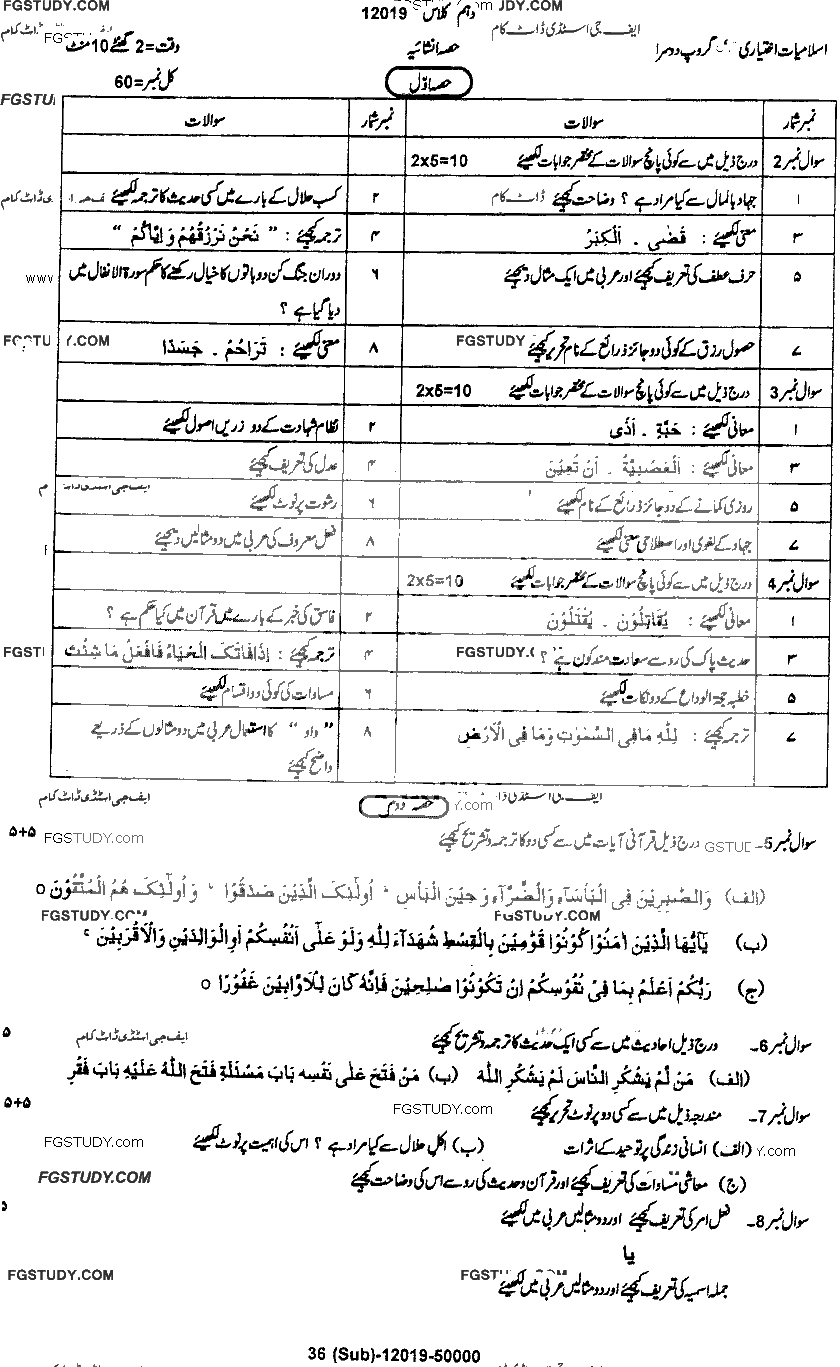 FGSTUDY.COM دہم کلاس 12019 JDY.COM
اسلامیات اختیاری گروپ دوسرا حصہ انشائیہ وقت = 2 گھنٹے 10 منٹ
حصہ اوّل کل نمبر = 60
نمبر شمار سوالات نمبر شمار سوالات
سوال نمبر 2 درج ذیل میں سے کوئی پانچ سوالات کے مختصر جوابات لکھیئے 2x5=10
۱ جہاد بالمال سے کیا مراد ہے ؟ وضاحت کیجئے ۲ کسب حلال کے بارے میں کسی حدیث کا ترجمہ لکھیئے
۳ معنی لکھیئے : قَضٰى ۔ اَلْكِبَرُ ۴ ترجمہ کیجئے : " نَحْنُ نَرْزُقُهُمْ وَ اِيَّاكُمْ "
۵ حرف عطف کی تعریف کیجئے اور عربی میں ایک مثال دیجئے ۶ دوران جنگ کن دو باتوں کا خیال رکھنے کا حکم سورۃ الانفال میں
دیا گیا ہے ؟
۷ حصول رزق کے کوئی دو جائز ذرائع کے نام تحریر کیجئے FGSTUDY ۸ معنی لکھیئے : تَرَاحُمْ ۔ جَسَدًا
سوال نمبر 3 درج ذیل میں سے کوئی پانچ سوالات کے مختصر جوابات لکھیئے 2x5=10
۱ معانی لکھیئے : حَبَّةٍ ۔ اَذًى ۲ نظام شہادت کے دو زریں اصول لکھیئے
۳ معانی لکھیئے : اَلْعَصَبِيَّةُ ۔ اَنْ تُعِيْنَ ۴ عدل کی تعریف کیجئے
۵ روزی کمانے کے دو جائز ذرائع کے نام لکھیئے ۶ رشوت پر نوٹ لکھیئے
۷ جہاد کے لغوی اور اصطلاحی معنی لکھیئے ۸ فعل معروف کی عربی میں دو مثالیں دیجئے
سوال نمبر 4 درج ذیل میں سے کوئی پانچ سوالات کے مختصر جوابات لکھیئے 2x5=10
۱ معانی لکھیئے : يُقَاتِلُوْنَ ۔ يُقْتَلُوْنَ ۲ فاسق کی خبر کے بارے میں قرآن میں کیا حکم ہے ؟
۳ حدیث پاک کی رو سے سعادت مند کون ہے ؟ FGSTUDY. ۴ ترجمہ کیجئے : اِذَا فَاتَكَ الْحَيَاءُ فَافْعَلْ مَا شِئْتَ
۵ خطبہ حجۃ الوداع کے دو نکات لکھیئے ۶ مساوات کی کوئی دو اقسام لکھیئے
۷ ترجمہ کیجئے : لِلّٰهِ مَا فِى السَّمٰوٰتِ وَمَا فِى الْاَرْضِ ۸ " واو " کا استعمال عربی میں دو مثالوں کے ذریعے
واضح کیجئے
حصہ دوم
سوال نمبر 5- درج ذیل قرآنی آیات میں سے کسی دو کا ترجمہ و تشریح کیجئے FGSTUDY.com ۵+۵
(الف) وَالصّٰبِرِيْنَ فِى الْبَاْسَآءِ وَالضَّرَّآءِ وَحِيْنَ الْبَاْسِ ؕ اُولٰٓئِكَ الَّذِيْنَ صَدَقُوْا ؕ وَ اُولٰٓئِكَ هُمُ الْمُتَّقُوْنَ ○
FGSTUDY.COM FGSTUDY.COM
(ب) يٰٓاَيُّهَا الَّذِيْنَ اٰمَنُوْا كُوْنُوْا قَوّٰمِيْنَ بِالْقِسْطِ شُهَدَآءَ لِلّٰهِ وَلَوْ عَلٰٓى اَنْفُسِكُمْ اَوِ الْوَالِدَيْنِ وَالْاَقْرَبِيْنَ ۚ
(ج) رَبُّكُمْ اَعْلَمُ بِمَا فِىْ نُفُوْسِكُمْ اِنْ تَكُوْنُوْا صٰلِحِيْنَ فَاِنَّهٗ كَانَ لِلْاَوَّابِيْنَ غَفُوْرًا ○
سوال نمبر 6- درج ذیل احادیث میں سے کسی ایک حدیث کا ترجمہ و تشریح کیجئے ایف جی اسٹڈی ڈاٹ کام ۵
(الف) مَنْ لَّمْ يَشْكُرِ النَّاسَ لَمْ يَشْكُرِ اللّٰهَ (ب) مَنْ فَتَحَ عَلٰى نَفْسِهٖ بَابَ مَسْئَلَةٍ فَتَحَ اللّٰهُ عَلَيْهِ بَابَ فَقْرٍ
سوال نمبر 7- مندرجہ ذیل میں سے کسی دو پر نوٹ تحریر کیجئے FGSTUDY.com ۵+۵
(الف) انسانی زندگی پر توحید کے اثرات (ب) اکل حلال سے کیا مراد ہے ؟ اس کی اہمیت پر نوٹ لکھیئے FGSTUDY.com
(ج) معاشی مساوات کی تعریف کیجئے اور قرآن و حدیث کی رو سے اس کی وضاحت کیجئے FGSTUDY.COM
سوال نمبر 8- فعل امر کی تعریف کیجئے اور دو مثالیں عربی میں لکھیئے ۵
یا
جملہ اسمیہ کی تعریف کیجئے اور دو مثالیں عربی میں لکھیئے FGSTUDY.COM
36 (Sub)-12019-50000